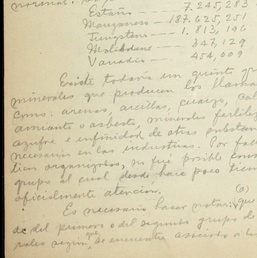 normal:
Estaño 7.245,283
Manganeso - 187.625,251
Tungsteno 1.813,196
Molibdeno 347,129
Vanadio 454,009
Existe todavía un quinto
minerales que producen los llama
como: arenas, arcillas, cuarzo, cal
amianto o asbesto, minerales fertiliz
azufre e infinidad de otras substan
necesarias en las industrias. Por falt
ticas organizadas, no fué posible cons
grupo al cual desde hace poco tiem
oficialmente atención.
(a)
Es necesario hacer notar, que
del primero y del segundo grupo d
rales según que se encuentra asociado a l